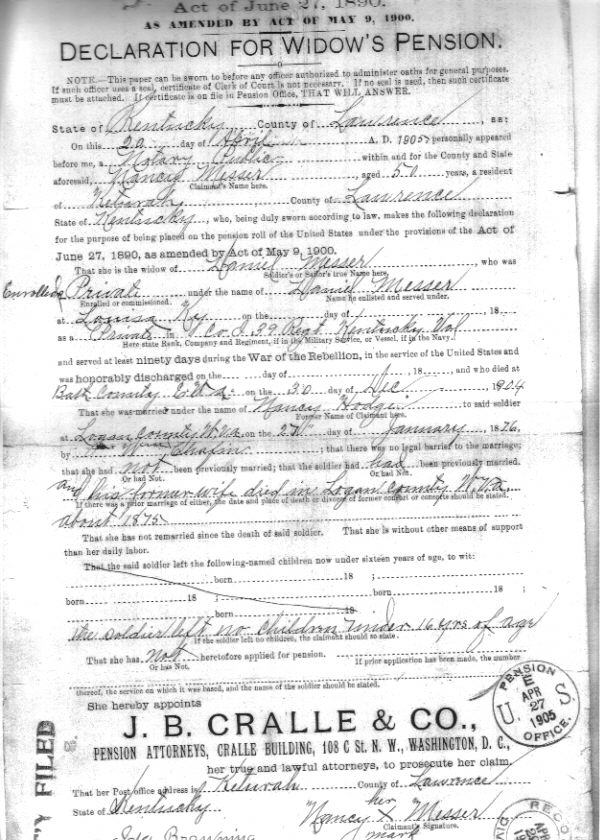 Act of June 27, 1890.
AS AMENDED BY ACT OF MAY 9, 1900.
DECLARATION FOR WIDOW'S PENSION.
NOTE.—This paper can be sworn to before any officer authorized to administer oaths for general purposes.
If such officer uses a seal, certificate of Clerk of Court is not necessary. If no seal is used, then such certificate
must be attached. If certificate is on file in Pension Office, THAT WILL ANSWER.
State of Kentucky County of Lawrence, ss:
On this 20 day of April A. D. 1905 personally appeared
before me, a Notary Public within and for the County and State
aforesaid, Nancy Messer, aged 50 years, a resident
Claimant's Name here.
of Keturah, County of Lawrence
State of Kentucky, who, being duly sworn according to law, makes the following declaration
for the purpose of being placed on the pension roll of the United States under the provisions of the Act of
June 27, 1890, as amended by Act of May 9, 1900.
That she is the widow of Daniel Messer, who was
Soldier's or Sailor's true Name here.
Enrolled Private under the name of Daniel Messer
Enrolled or commissioned. Name he enlisted and served under.
at Louisa Ky on the day of , 18
as a Private in Co. 39 Regt Kentucky Vol
Here state Rank, Company and Regiment, if in the Military Service, or Vessel, if in the Navy.
and served at least ninety days during the War of the Rebellion, in the service of the United States and
was honorably discharged on the day of , 18 and who died at
Bath County on the 30 day of Dec, 1904
That she was married under the name of Nancy Hodge to said soldier
Former Name of Claimant here.
at Logan County W.Va on the day of January, 1876.
by Chafin ; that there was no legal barrier to the marriage;
that she had not been previously married; that the soldier had had been previously married.
Or had Not. Or had Not.
and his former wife died in Logan County W.Va.
If there was a prior marriage of either, the date and place of death or divorce of former consort or consorts should be stated.
about 1875
That she has not remarried since the death of said soldier. That she is without other means of support
than her daily labor.
That the said soldier left the following-named children now under sixteen years of age, to wit:
born 18 ;
born 18 ; born 18 ;
born 18
the soldier left no children under 16 yrs of age
If the soldier left no children, the claimant should so state.
That she has not heretofore applied for pension. If prior application has been made, the number
Or has Not.
thereof, the service on which it was based, and the name of the soldier should be stated.
She hereby appoints
J. B. CRALLE & CO.,
PENSION ATTORNEYS, CRALLE BUILDING, 108 C St. N. W., WASHINGTON, D. C.,
her true and lawful attorneys, to prosecute her claim.
That her Post office address is Keturah County of Lawrence
State of Kentucky
her
Nancy X Messer
Claimant's Signature.
mark
Browning
PENSION
U. S.
APR
27
1905
OFFICE.
FILED